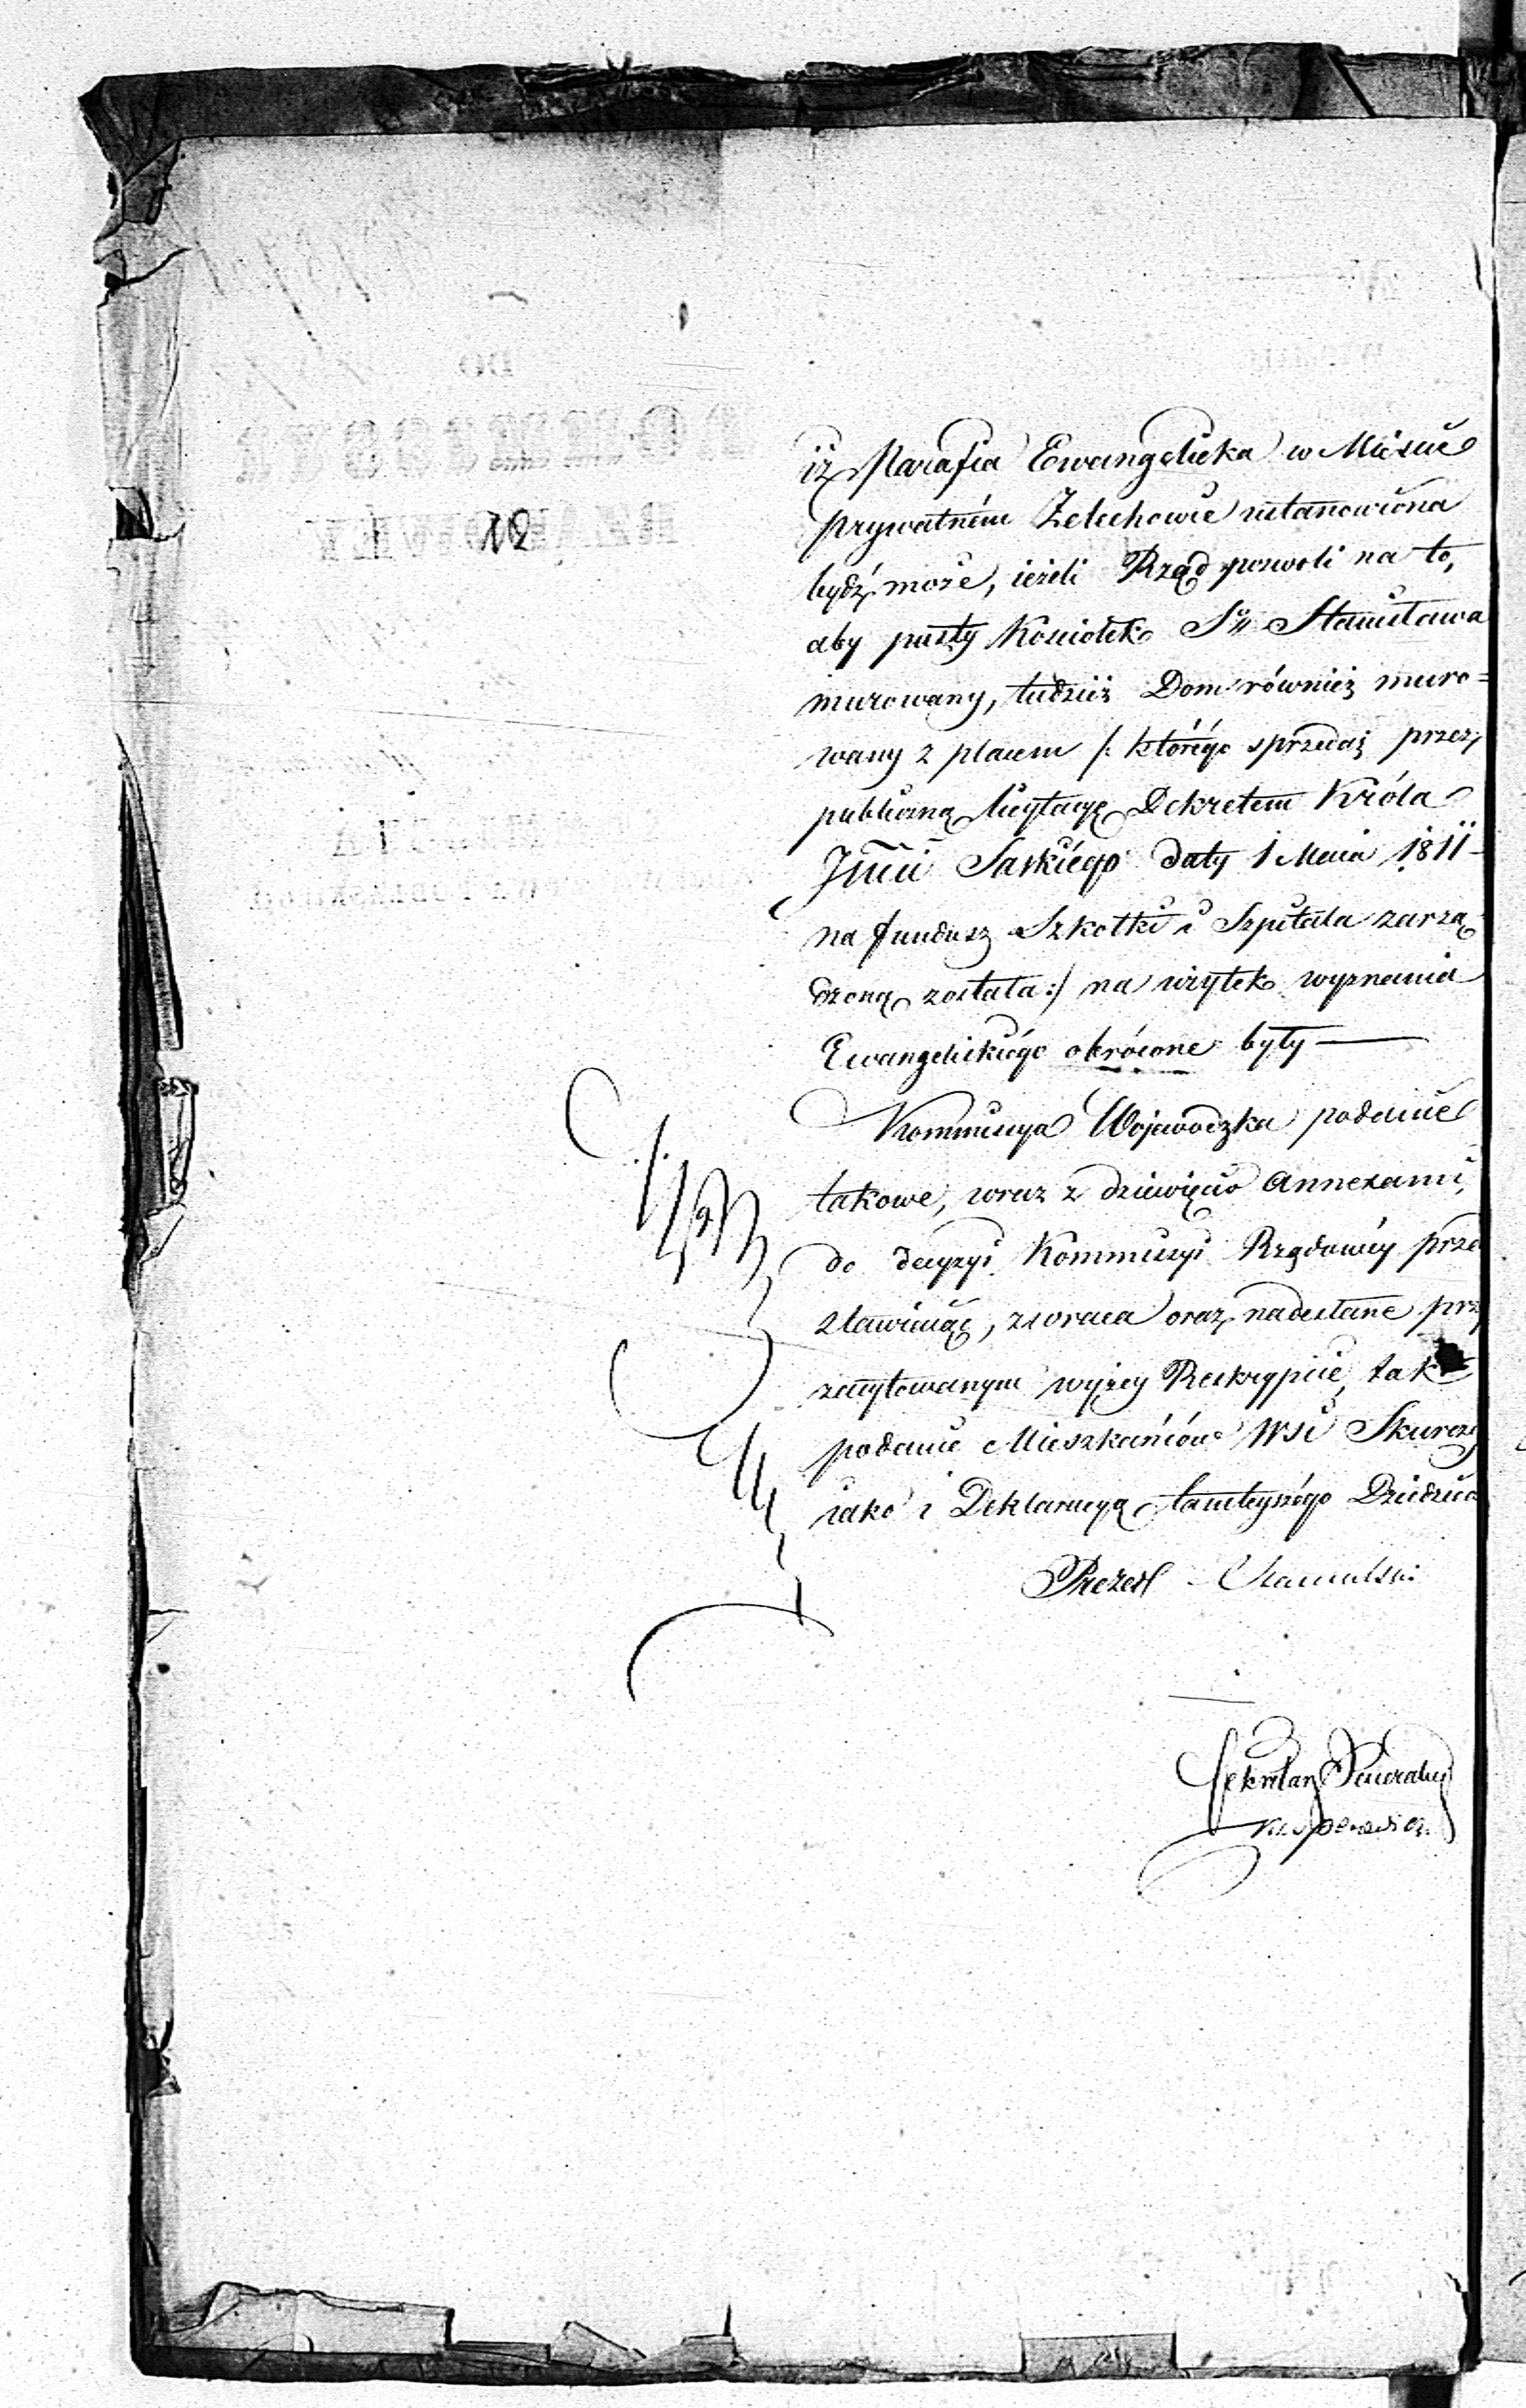 12
iż Parafia Ewangelicka w Mieście
prywatném Żelechowie ustanowiona
bydź może, ieżeli Rząd pozwoli na to,
aby pusty Kościołek Sgo Stanisława
murowany, tudzież Dom również muro=
wany z placem /: którégo sprzedaż przez
publiczną licytacyę Dekretem Króla
Jmci Saskiégo daty 1 Maia 1811
na fundusz Szkółki i Szpitala zarzą
dzoną została :/ na użytek wyznania
Ewangelickiégo obrócone były —
Kommissya Woiewodzka podanie
takowe, wraz z dziewięcio annexami,
do decyzyi Kommissyi Rządowéy prze
stawiaiąc, zwraca oraz nadesłane prz
zacytowanym wyżey Reskrypcie, tak
podanie Mieszkańców Wsi Skurcz
iako i Deklaracyą tamteyszégo Dziedzica
Prezes
Sekretarz Jeneralny